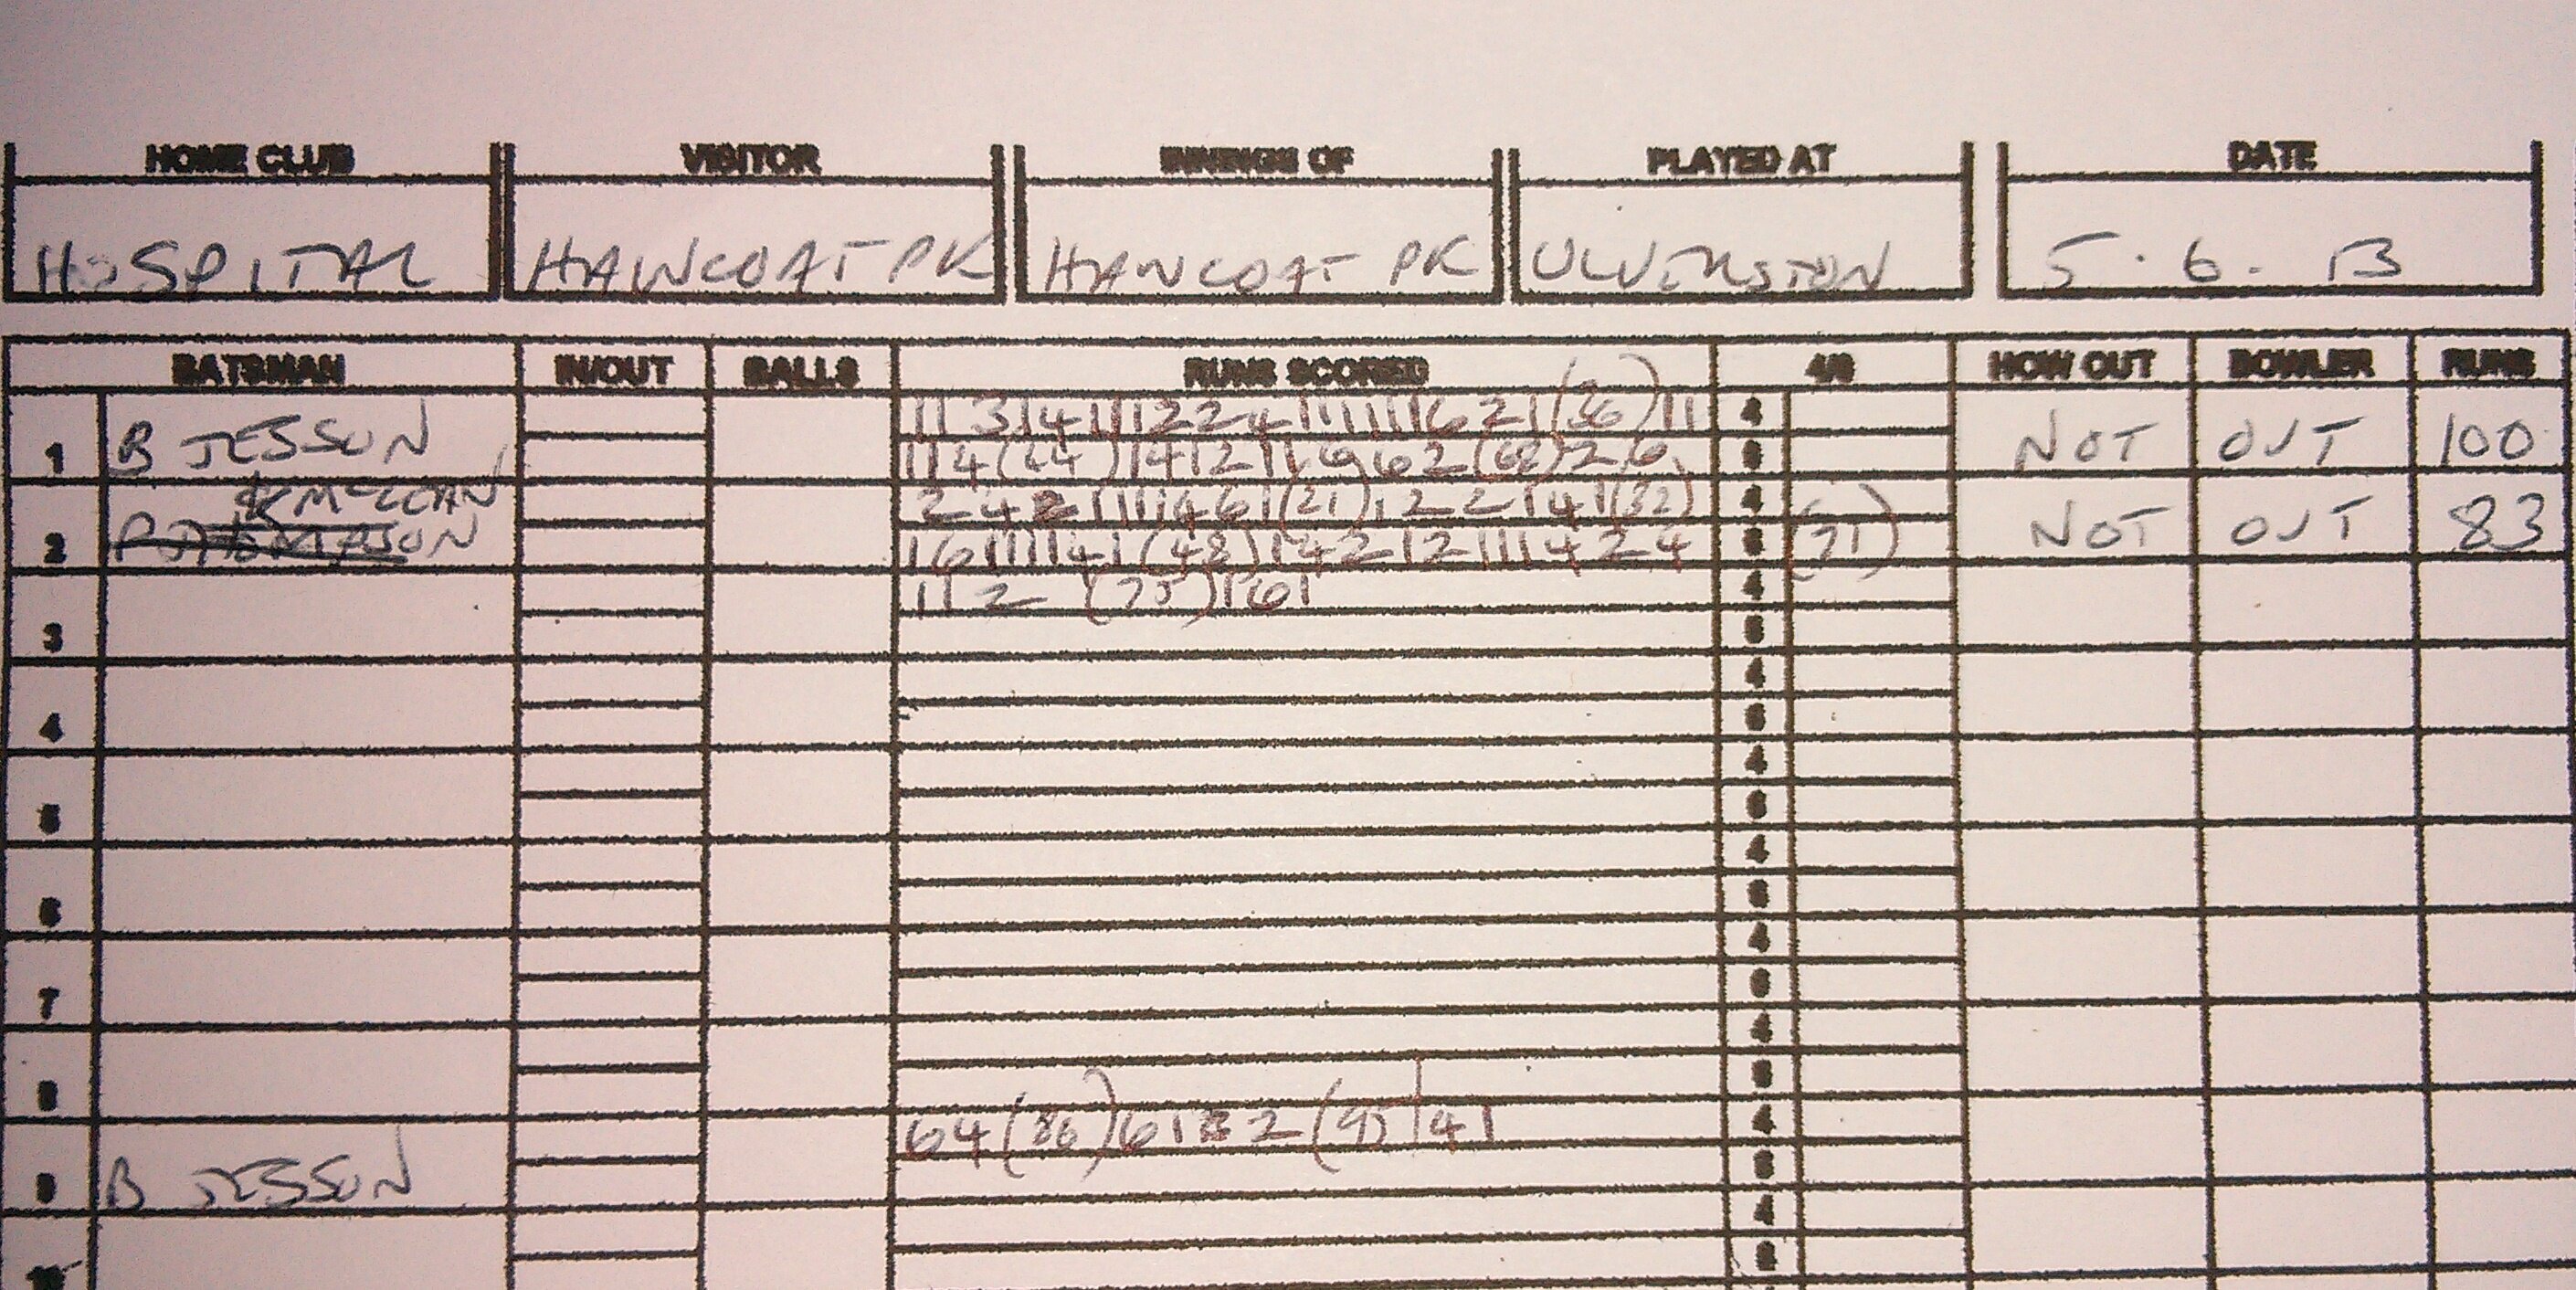 HOME CLUB VISITOR INNINGS OF PLAYED AT DATE
HOSPITAL HAWCOAT PK HAWCOAT PK ULVERSTON 5.6.13
BATSMAN IN/OUT BALLS RUNS SCORED 4/6 HOW OUT BOWLER RUNS
1 B JESSON 1131411122411111162 1(36)11 4 NOT OUT 100
114(44)141211662(68)26 6
K McLEAN 242111146 1(21)12214 1(32) 4 NOT OUT 83
2 P THOMPSON 16111141(48)142121114 24 6 (71)
112 (75)161 4
3 6
4
4 6
4
5 6
4
6 6
4
7 6
4
8 6
64(86)612(95)41 4
9 B JESSON 6
4
10 6